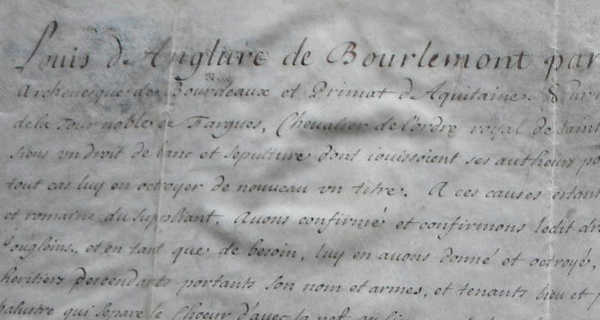 Louis d'Anglure de Bourlemont par
Archevesque de Bourdeaux et Primat d'Aquitaine. Sur
de la Tour noble de Fargues, Chevalier de l'ordre royal de saint
sions un droit de banc et sepulture dont iouissoient ses autheurs po
tout cas luy en octroyer de nouveau vn titre. A ces causes estant
et romaine du supliant. Avons confirmé et confirmons ledit dr
et en tant que de besoin, luy en avons donné et octroyé,
heritiers descendants portants son nom et armes, et tenants lieu et p
balustre qui separe le Choeur d'avec la nef